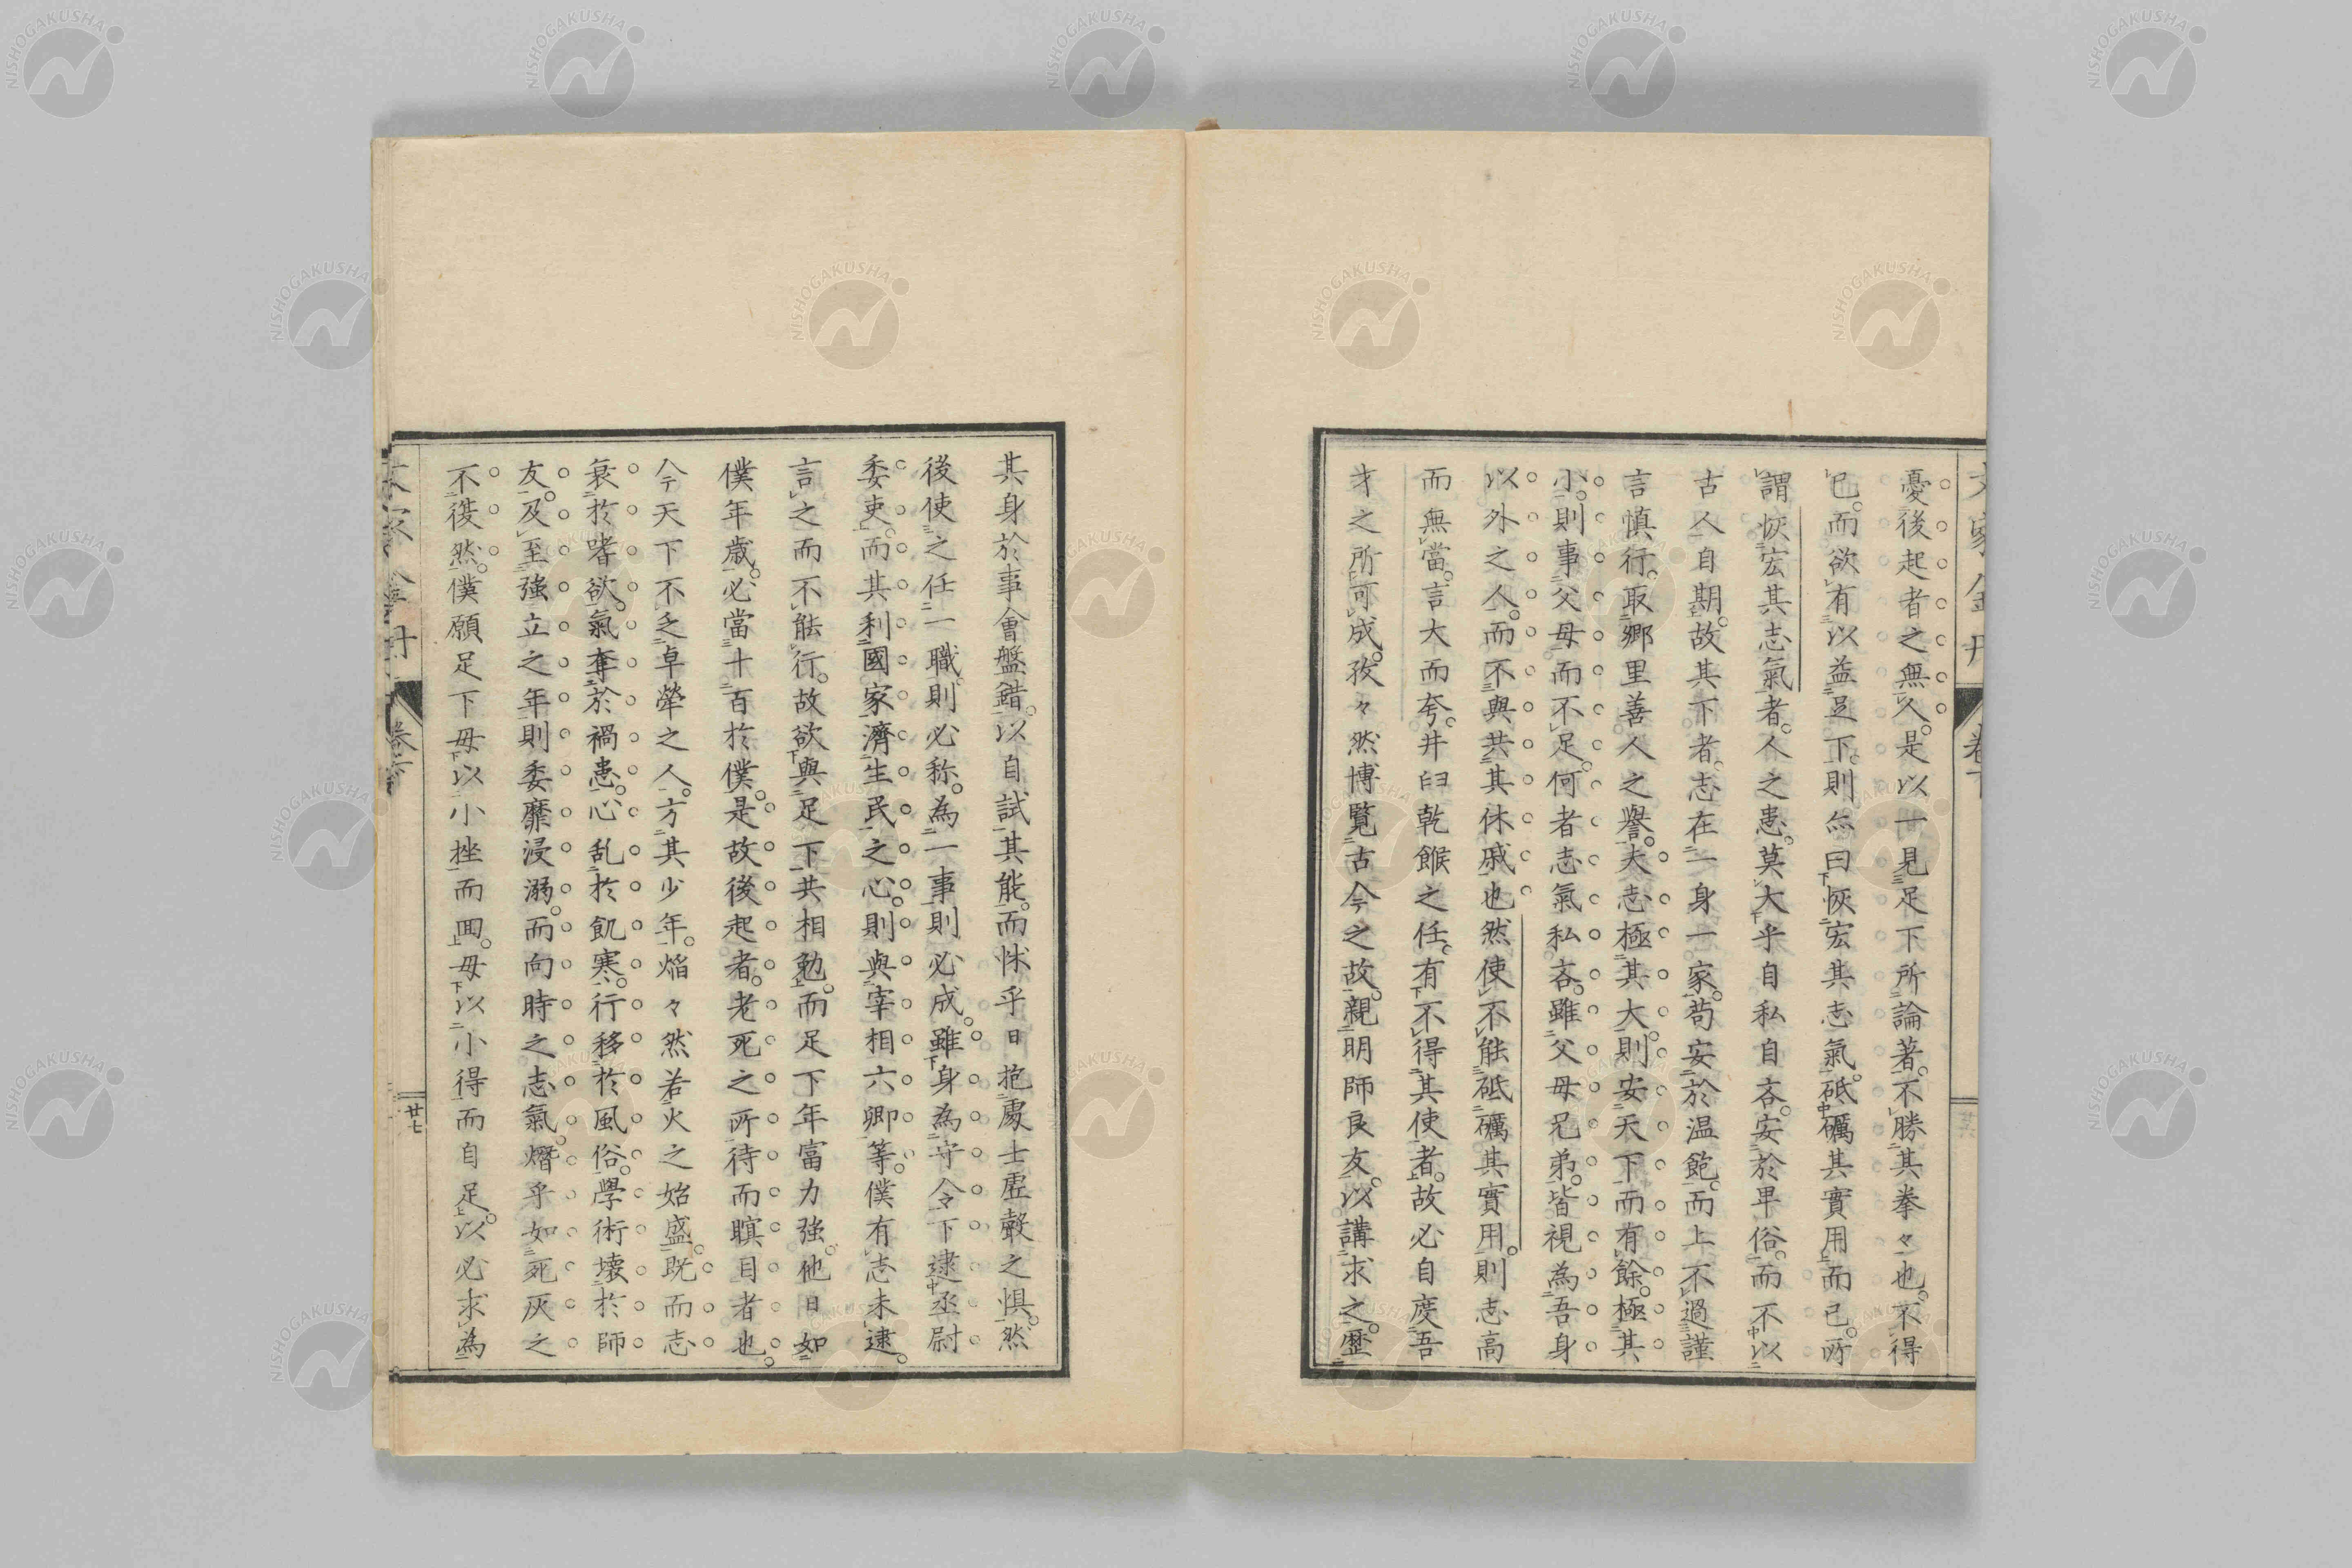 憂後起者之無人是以一見足下所論著不勝其拳々也不得
已而欲有以益足下則亦曰恢宏其志氣砥礪其實用而已所
謂恢宏其志氣者人之患莫大乎自私自吝安於卑俗而不以
古人自期故其下者志在一身一家苟安於温飽而上不過謹
言慎行取鄉里善人之譽夫志極其大則安天下而有餘極其
小則事父母而不足何者志氣私吝雖父母兄弟皆視為吾身
以外之人而不與共其休戚也然使不能砥礪其實用則志高
而無當言大而夸井臼乾餱之任有不得其使者故必自度吾
才之所可成孜々然博覽古今之故親明師良友以講求之歷
其身於事會盤錯以自試其能而怵乎日抱處士虛聲之惧然
後使之任一職則必称為一事則必成雖身為守令下逮丞尉
委吏而其利國家濟生民之心則與宰相六卿等僕有志未逮
言之而不能行故欲與足下共相勉而足下年富力強他日如
僕年歲必當十百於僕是故後起者老死之所待而瞑目者也
今天下不乏卓犖之人方其少年焰々然若火之始盛既而志
衰於嗜欲氣奪於禍患心乱於飢寒行移於風俗學術壊於師
友及至強立之年則委靡浸溺而向時之志氣熸乎如死灰之
不復然僕願足下毋以小挫而囬毋以小得而自足以必求為
文家金丹
卷下
廿七
NISHOGAKUSHA